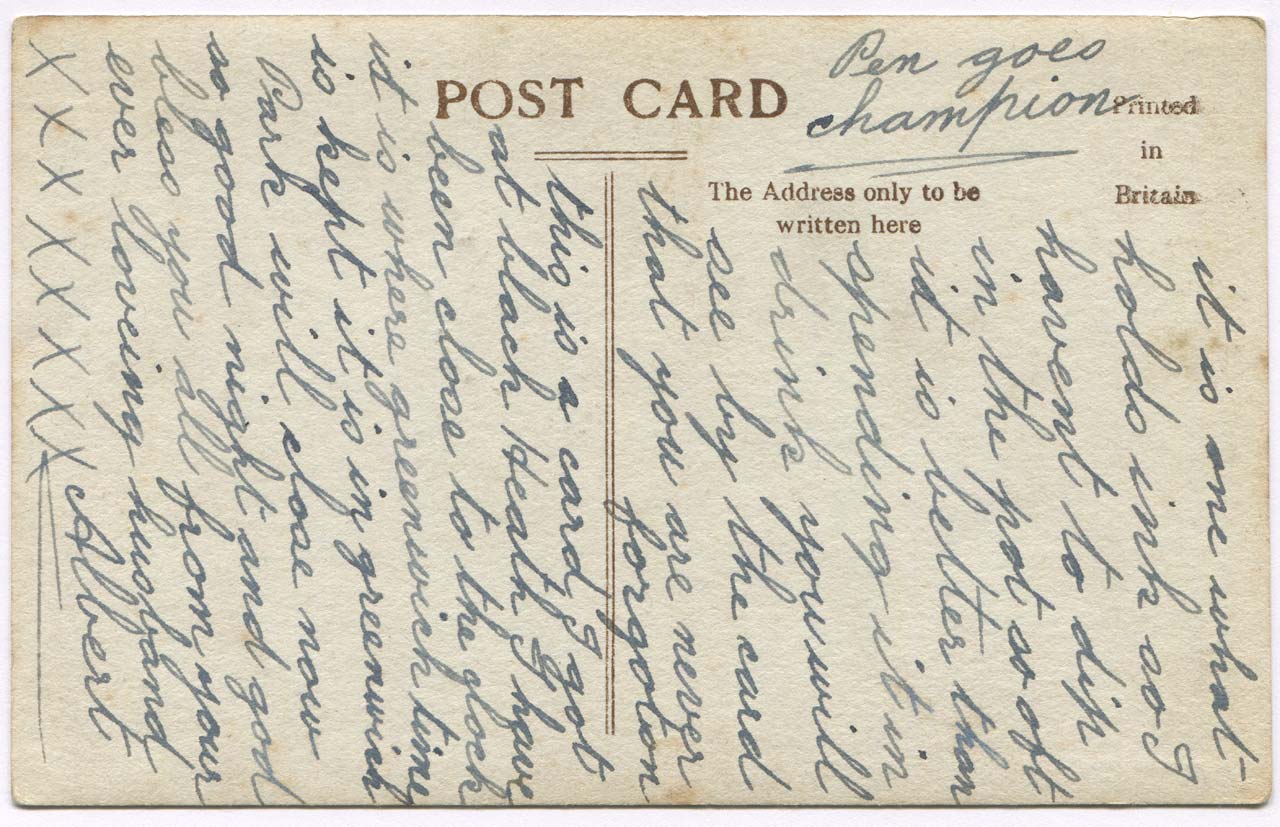 POST CARD
Pen goes
champion
Printed
in
Britain
The Address only to be
written here
it is one what
holds ink so I
havent to dip
in the pot so oft
it is better than
spending it in
drink you will
see by the card
that you are never
forgoton
this is a card I got
at black Heath I have
been close to the glock
it is where greenwich time
is kept it is in greenwich
Park will close now
so good night and god
bless you all from your
ever loveing husband
Albert
X X X X X X X X